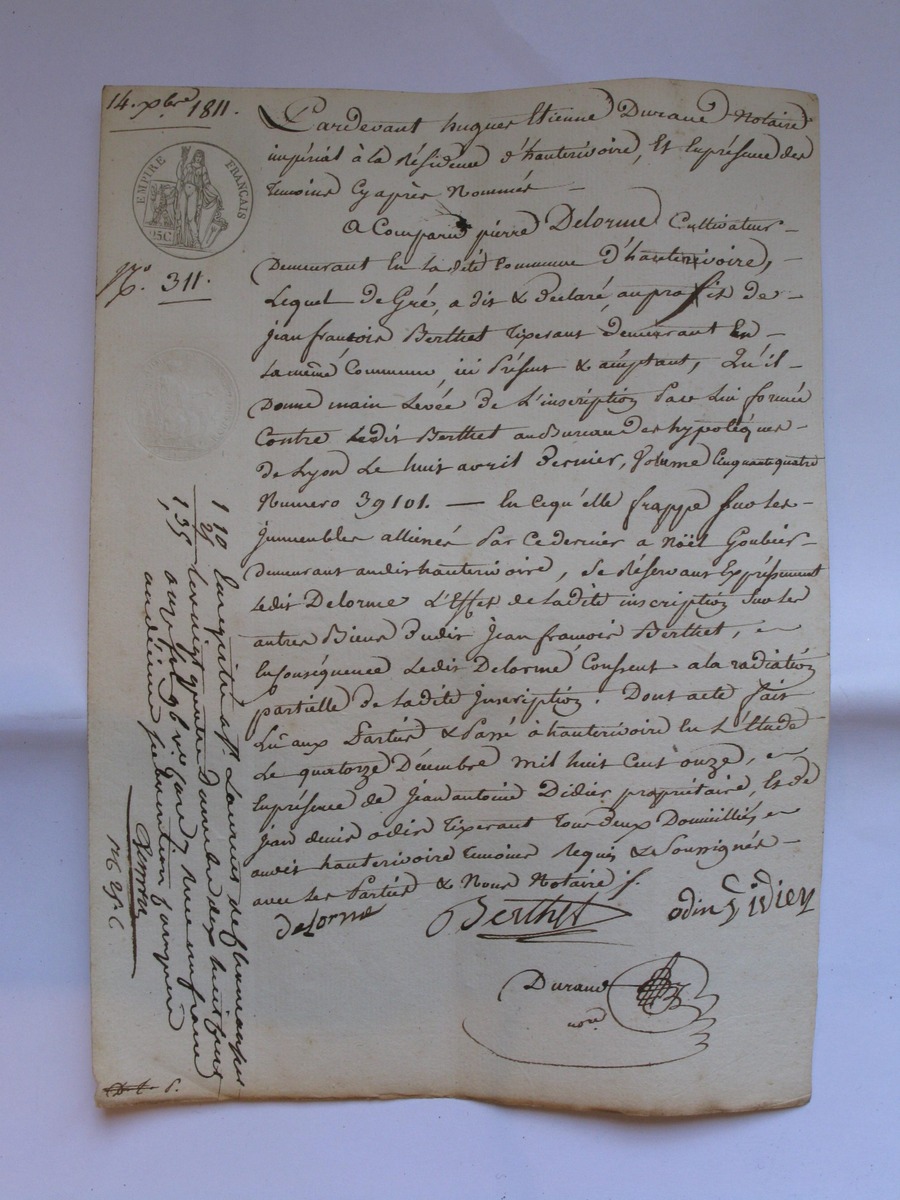 14. xbre 1811.
EMPIRE FRANÇAIS
25C
No. 311.
Pardevant hugues Etienne Durand Notaire
impérial à la Résidence d'hauterivoire, Et Enprésence des
temoins Cy après Nommés
a Comparu pierre Delorme Cultivateur
Demeurant En ladité Commune d'hauterivoire,
Lequel de Gré, a dit & declaré, auprofit de
jean francois Berthet Tixerant demeurant En
la même Commune, ici Présent & acceptant, Qu'il
Donne main Levée de L'inscription Par Lui formée
Contre Ledit Berthet au Bureau des hypotéques
de Lyon Le huit avril Dernier, Volume Cinquantequatre
Numero 39101. — En cequ'elle frappe sur les
immeubles alliénés Par Cedernier a Nöel Goubier
demeurant audit hauterivoire, Se Réservant Expréssement
Ledit Delorme L'Effet de ladité inscription Sur les
autres Biens Dudit Jean francois Berthet, en
Conséquence Ledit Delorme Consent a la radiation
partielle de ladité Inscription. Dont acte fait
Lû aux Partiés & Passé à hauterivoire En L'Etude
Le quatorze Décembre mil huit Cent onze, en
Enprésence de Jean antoine Didier propriétaire, Et de
jean denis odin Tixerant Tous deux Domiciliés en
audit hauterivoire temoins Requis & Soussignés
avec les Partiés & Nous Notaire
DeLorme
Berthet
odin
Didier
Durand
nore
1 10
1,35
Enregistré à St Laurent de Chamousset